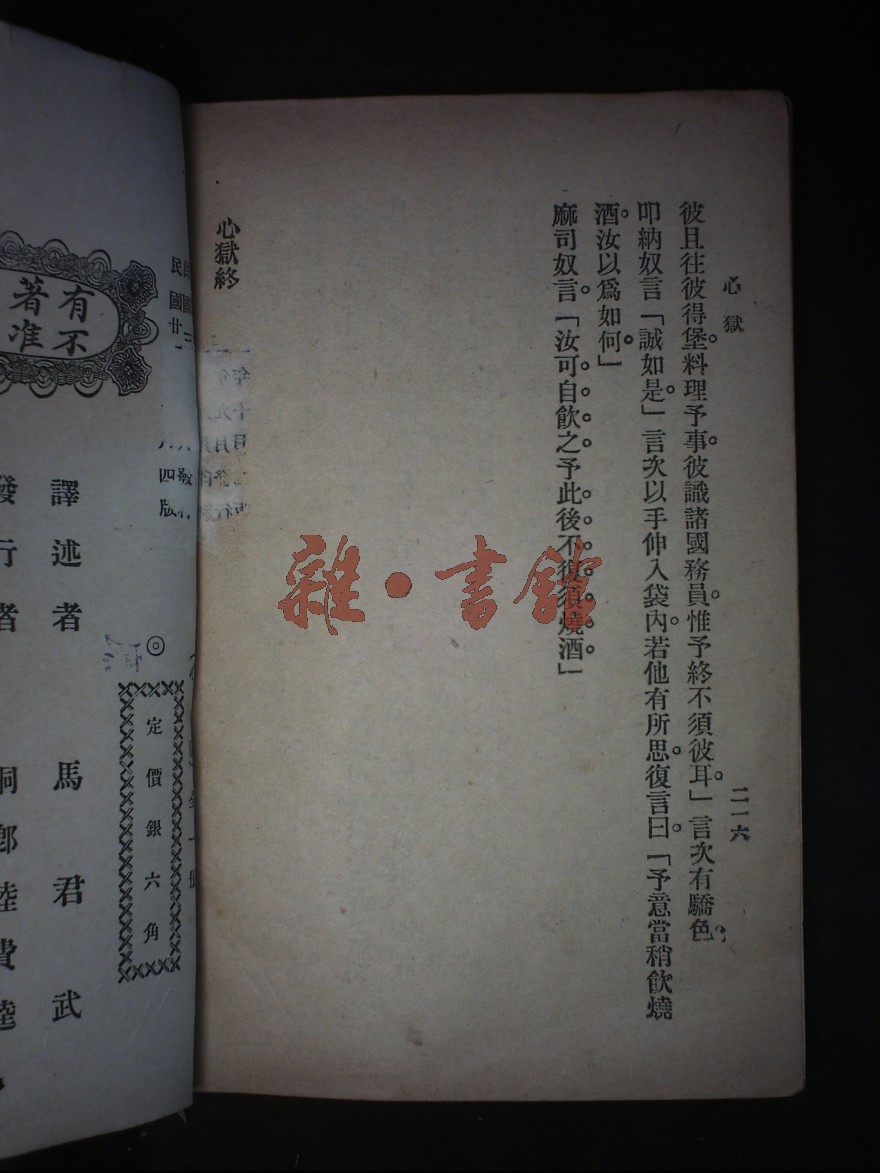 心獄
二一六
彼且往彼得堡。料理予事。彼識諸國務員。惟予終不須彼耳。」言次有驕色。
叩納奴言「誠如是。」言次以手伸入袋內。若他有所思。復言曰。「予意當稍飲燒
酒。汝以爲如何。」
麻司奴言。「汝可自飲之。予此後不復須燒酒。」
心獄終
雜·書館
有不
著准
民國
民國廿
四版
定價銀六角
譯述者 馬君武
發行者 桐鄉陸費逵